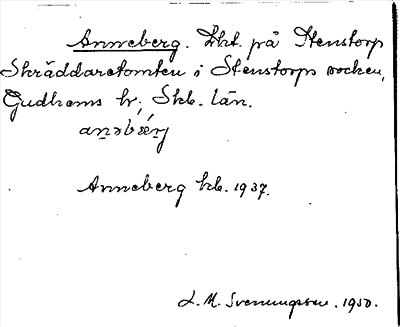 Anneberg. Lht. på Stenstorp
Skräddaretomten i Stenstorps socken,
Gudhems hr, Skb. län.
Anneberg kb. 1937.
L. M. Svenungsson. 1950.